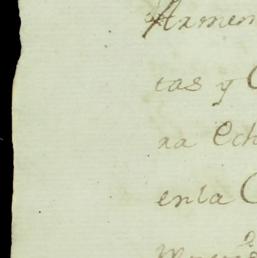 Armen
tas y C
ra Ech
en la C